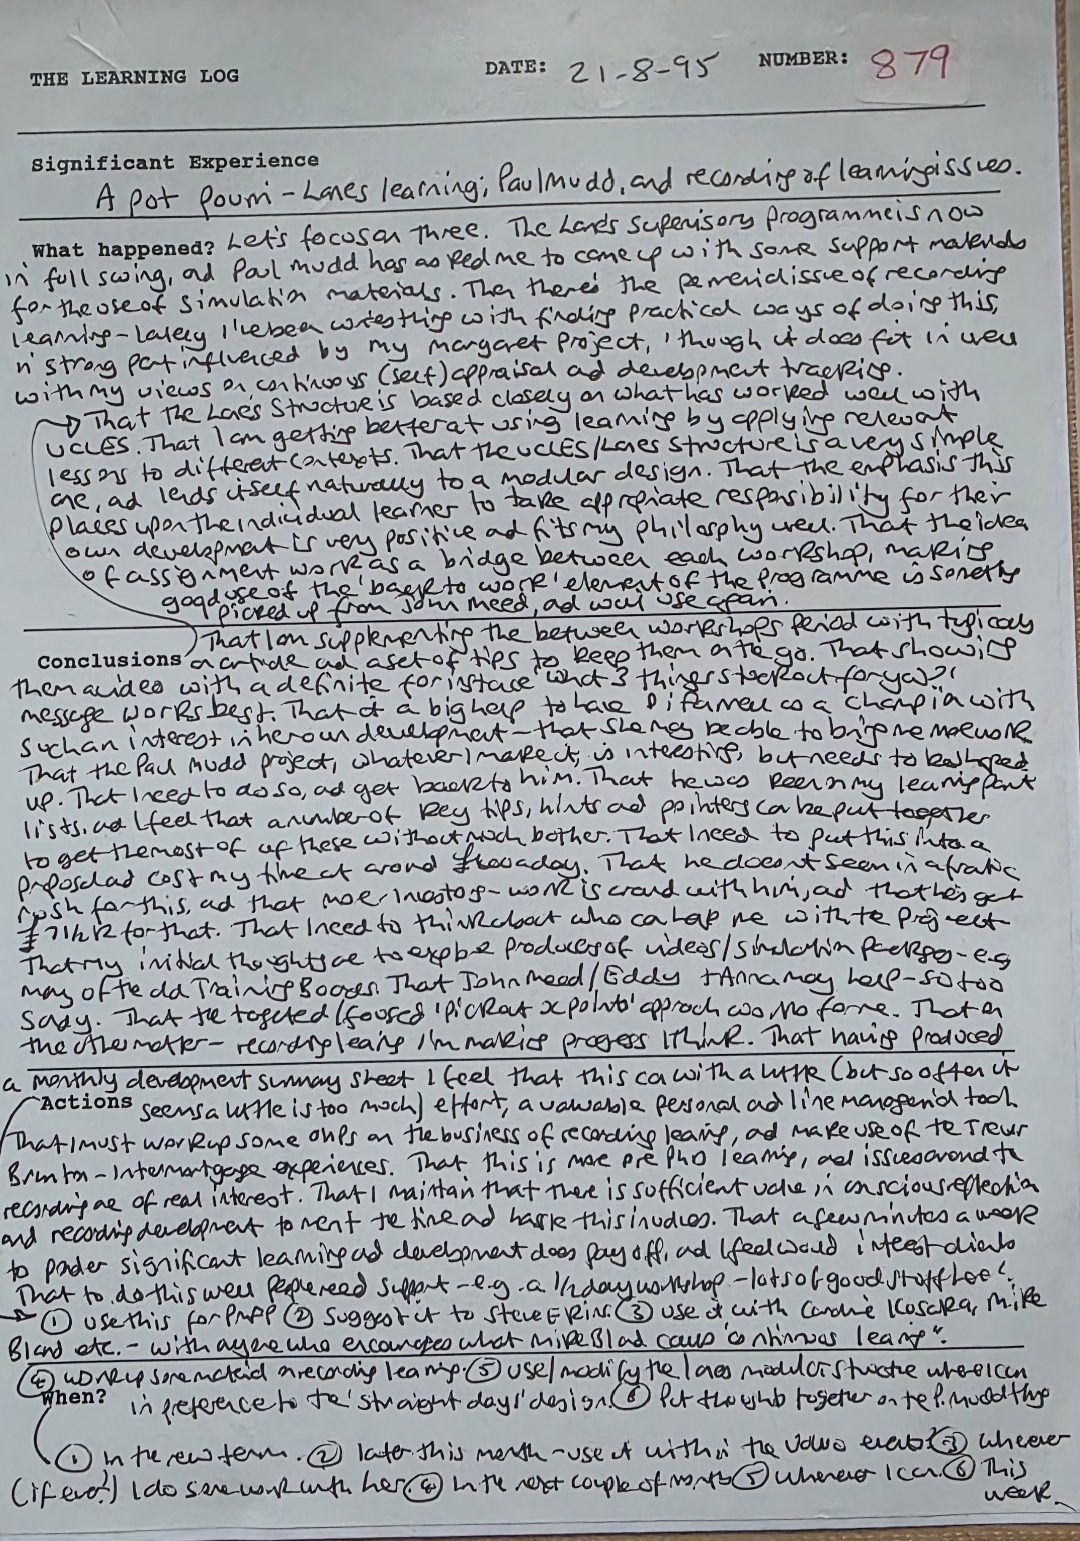 THE LEARNING LOG DATE: 21-8-95 NUMBER: 879
Significant Experience
A pot pourri - Lanes learning; Paul Mudd, and recording of learning issues.
What happened? Let's focus on three. The Lanes Supervisory Programme is now
in full swing, ad Paul Mudd has asked me to come up with some support materials
for the use of simulation materials. Then there's the perennial issue of recording
learning - lately I've been wrestling with finding practical ways of doing this,
in strong part influenced by my Margaret Project, 'though it does fit in well
with my views on continuous (self) appraisal ad development tracking.
That the Lanes Structure is based closely on what has worked well with
UCLES. That I am getting better at using learning by applying relevant
lessons to different contexts. That the UCLES/Lanes structure is a very simple
one, ad lends itself naturally to a modular design. That the emphasis this
places upon the individual learner to take appropriate responsibility for their
own development is very positive ad fits my philosophy well. That the idea
of assignment work as a bridge between each workshop, making
good use of the 'back to work' element of the programme is something
picked up from John Meed, ad will use again.
That I am supplementing the between workshops period with typically
Conclusions an article ad a set of tips to keep them on the go. That showing
them a video with a definite for instance 'what 3 things stock out for you?'
message works best. That it a big help to have Di as a champion with
such an interest in her own development - that she may be able to bring me more work
That the Paul Mudd project, whatever I make it, is interesting, but needs to be shaped
up. That I need to do so, ad get back to him. That he was keen on my learning point
lists, ad I feel that a number of key tips, hints ad pointers can be put together
to get the most of of these without much bother. That I need to put this into a
proposal ad cost my time at around a day. That he doesn't seem in a frantic
rush for this, ad that more Investors - work is around with him, ad that he's got
£71k for that. That I need to think about who can help me with the project
That my initial thoughts are to explore producers of videos/simulation packages - e.g.
may of the old Training Boards. That John Meed/Eddy + Anna may help - so too
Sady. That the targeted/focused 'pick out x points' approach was No for me. That on
the other matter - recording learning I'm making progress I think. That having produced
a monthly development summary sheet I feel that this can with a little (but so often it
Actions seems a little is too much) effort, a valuable personal ad line managerial tool.
That I must work up some OHPs on the business of recording learning, ad make use of the Trevor
Brunton - Intermortgage experiences. That this is more pre PhD learning, ad issues around the
recording are of real interest. That I maintain that there is sufficient value in conscious reflection
and recording development to merit the time ad hassle this involves. That a few minutes a week
to ponder significant learning ad development does pay off, ad I feel would interest clients
That to do this well people need support - e.g. a 1/2 day workshop - lots of good stuff here!
① Use this for PMPP ② Suggest it to Steve Ekins. ③ use it with Caroline Koscika, Mike
Bland etc. - with anyone who encourages what Mike Bland calls 'continuous learning'.
④ work up some material on recording learning. ⑤ Use/modify the Lanes modular structure where I can
When? in preference to the 'straight days' design. ⑥ Put thoughts together on the P. Mudd thing
① In the new term. ② later this month - use it within the Volvo event? ③ Whenever
(if ever!) I do some work with her. ④ In the next couple of months ⑤ Whenever I can. ⑥ This
week.